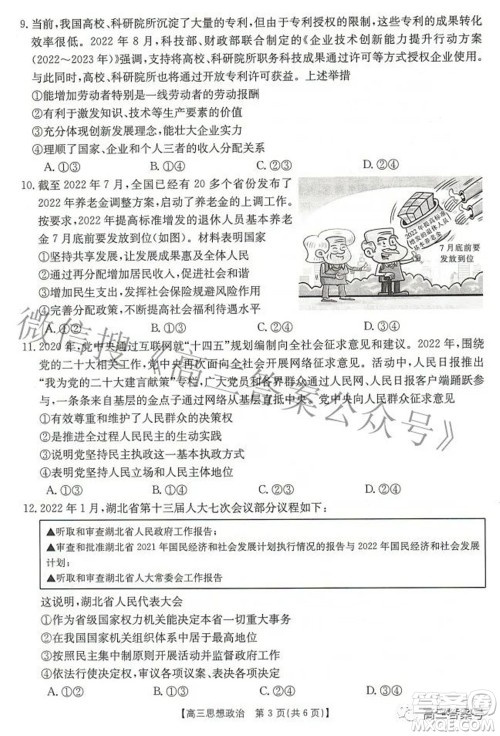 9. 当前，我国高校、科研院所沉淀了大量的专利，但由于专利授权的限制，这些专利的成果转化
效率很低。2022 年 8 月，科技部、财政部联合制定的《企业技术创新能力提升行动方案
(2022～2023 年)》强调，支持将高校、科研院所职务科技成果通过许可等方式授权企业使用。
高校、科研院所也通过专利许可等方式获得了收益。这些措施
①能增加劳动者特别是一线劳动者的劳动报酬
②有利于激发知识、技术等生产要素的价值
③充分体现了尊重劳动、尊重知识、尊重创新
④理顺了国家、企业、个人三者的收入分配关系
A. ①③
B. ①④
C. ②③
D. ②④
10. 截至 2022 年 7 月，全国已经有 20 多个省份发布了
2022 年养老金调整方案，启动养老金的上调工作。
按要求，2022 年提高标准增加的退休人员基本养老
金 7 月底前要发放到位(如图)。材料表明国家
①坚持共享发展，让发展成果惠及人民
②通过增加居民收入，促进居民生活改善
③坚持适度原则，发挥社会保险规避风险作用
④坚持在发展的前提下提高社会福利待遇水平
A. ①②
B. ①③
C. ②④
D. ③④
2022年提高标准
增加的退休人员
基本养老金
7 月底前要
发放到位
11. 2020 年，党中央通过互联网就“十四五”规划编制向全社会征求意见和建议。2022 年，围绕
党的二十大相关工作，党中央再次面向全社会开展网络征求意见活动，人民日报社等推出
“我为党的二十大建言献策”专栏，广大党员和人民群众在人民网、人民日报客户端踊跃参
与，一条条来自基层的建言通过网络从基层直抵中央。党中央向人民征求意见
①有效尊重和维护了人民群众的决策权
②是对全过程人民民主的生动实践
③说明党坚持民主执政以广泛汇聚民智
④表明党坚持人民立场和人民主体地位
A. ①②
B. ①③
C. ②④
D. ③④
12. 2022 年 1 月，湖北省第十三届人大七次会议部分议程如下：
▲听取和审查湖北省人民政府工作报告；
▲审查和批准湖北省 2021 年国民经济和社会发展计划执行情况的报告与 2022 年国民经济和社会发展
计划；
▲听取和审查湖北省人大常委会工作报告
这说明，湖北省人民代表大会
①作为省级国家权力机关能决定本省一切重大事务
②在我国国家机关组织体系中居于主导地位
③能够产生湖北省人民政府，并对其实施监督
④依法行使对湖北省政府重大事项的审议权、决定权
A. ①②
B. ①③
C. ②④
D. ③④
【高三思想政治　第 3 页(共 6 页)】
微信搜《高三答案公众号》
高三答案号